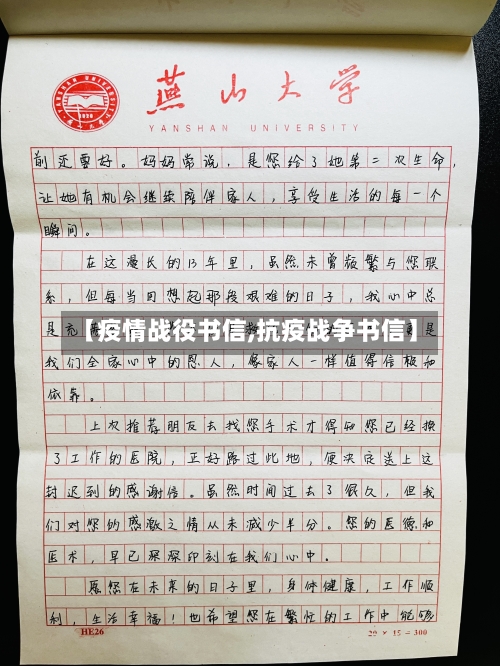 燕山大学
YANSHAN UNIVERSITY
前还要好。妈妈常说，是您给了她第二次生命，
让她有机会继续陪伴家人，享受生活的每一个
瞬间。
在这漫长的13年里，虽然未曾频繁与您联
系，但每当回想起那段艰难的日子，我心中总
是充
【疫情战役书信,抗疫战争书信】
是
我们全家心中的恩人，像家人一样值得信赖和
依靠。
上次推荐朋友去找您手术才得知您已经换
了工作的医院，正好路过此地，便决定送上这
封迟到的感谢信。虽然时间过去了很久，但我
们对您的感激之情从未减少半分。您的医德和
医术，早已深深印刻在我们心中。
愿您在未来的日子里，身体健康，工作顺
利，生活幸福！也希望您在繁忙的工作中能够
HE26
20 × 15 = 300